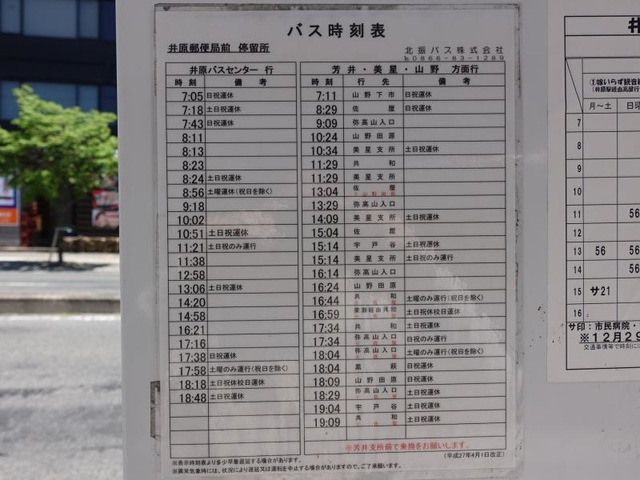 バス時刻表
井原郵便局前 停留所
北振バス株式会社
℡0866-83-1289
井原バスセンター 行
時刻 備考
7:05 日祝運休
7:18 土日祝運休
7:43 日祝運休
8:11
8:13
8:23
8:24 土日祝運休
8:56 土曜運休(祝日を除く)
9:18
10:02
10:51 土日祝運休
11:21 土日祝のみ運行
11:38
12:58
13:06 土日祝運休
14:20
14:58
16:21
17:16
17:38 日祝運休
17:58 土曜のみ運行(祝日を除く)
18:18 土日祝休校日運休
18:48 土日祝運休
芳井・美星・山野 方面行
時刻 行先 備考
7:11 山野下市 日祝運休
8:29 佐屋 日祝運休
9:09 弥高山入口
10:24 山野田原
10:34 美星支所 土日祝運休
11:29 共和
11:29 美星支所
13:04 佐屋
13:29 弥高山入口
14:09 美星支所 土日祝運休
15:04 佐屋
15:14 宇戸谷 土日祝運休
15:14 美星支所 土日祝のみ運行
16:14 弥高山入口
16:24 山野田原
16:44 共和 土曜のみ運行(祝日を除く)
16:59 土日祝休校日運休
17:34 共和 土日祝運休
17:34 弥高山入口 日祝のみ運行
18:04 弥高山入口 土曜のみ運行(祝日を除く)
18:04 黒萩 日祝運休
18:09 山野田原 土日祝運休
18:29 弥高山入口 土日祝運休
19:04 宇戸谷 土日祝運休
19:09 共和 土日祝運休
※芳井支所前で乗換をお願いします。
(平成27年4月1日改正)
※表示時刻表より多少早着遅延する場合があります。
※異常気象時には、状況により遅延又は運転を中止する場合がありますので、ご了承願います。
井
月～土 日曜
7
8
9
10
11 56
12
13 56 56
14 56
15 サ21
16
サ印：市民病院・
※12月29